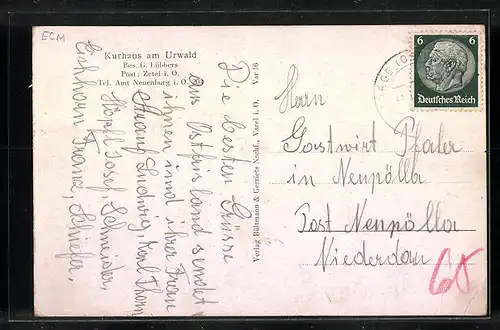 ECM
Kurhaus am Urwald
Bes. G. Lübbers
Post: Zetel i. O.
Tel. Amt Neuenburg i. O.
Die besten Grüsse
aus Ostfriesland sendet
ihnen und ihrer Frau
Ludwig, Karl
Höpfl Josef, Schneider,
Eichhorn Franz, Schiefer,
Verlag Bültmann & Gerriets Nachf., Varel i. O. Var 16
6 6
Deutsches Reich
Herrn
Gastwirt
in Neupölla
Post Neupölla
Niederdau
60